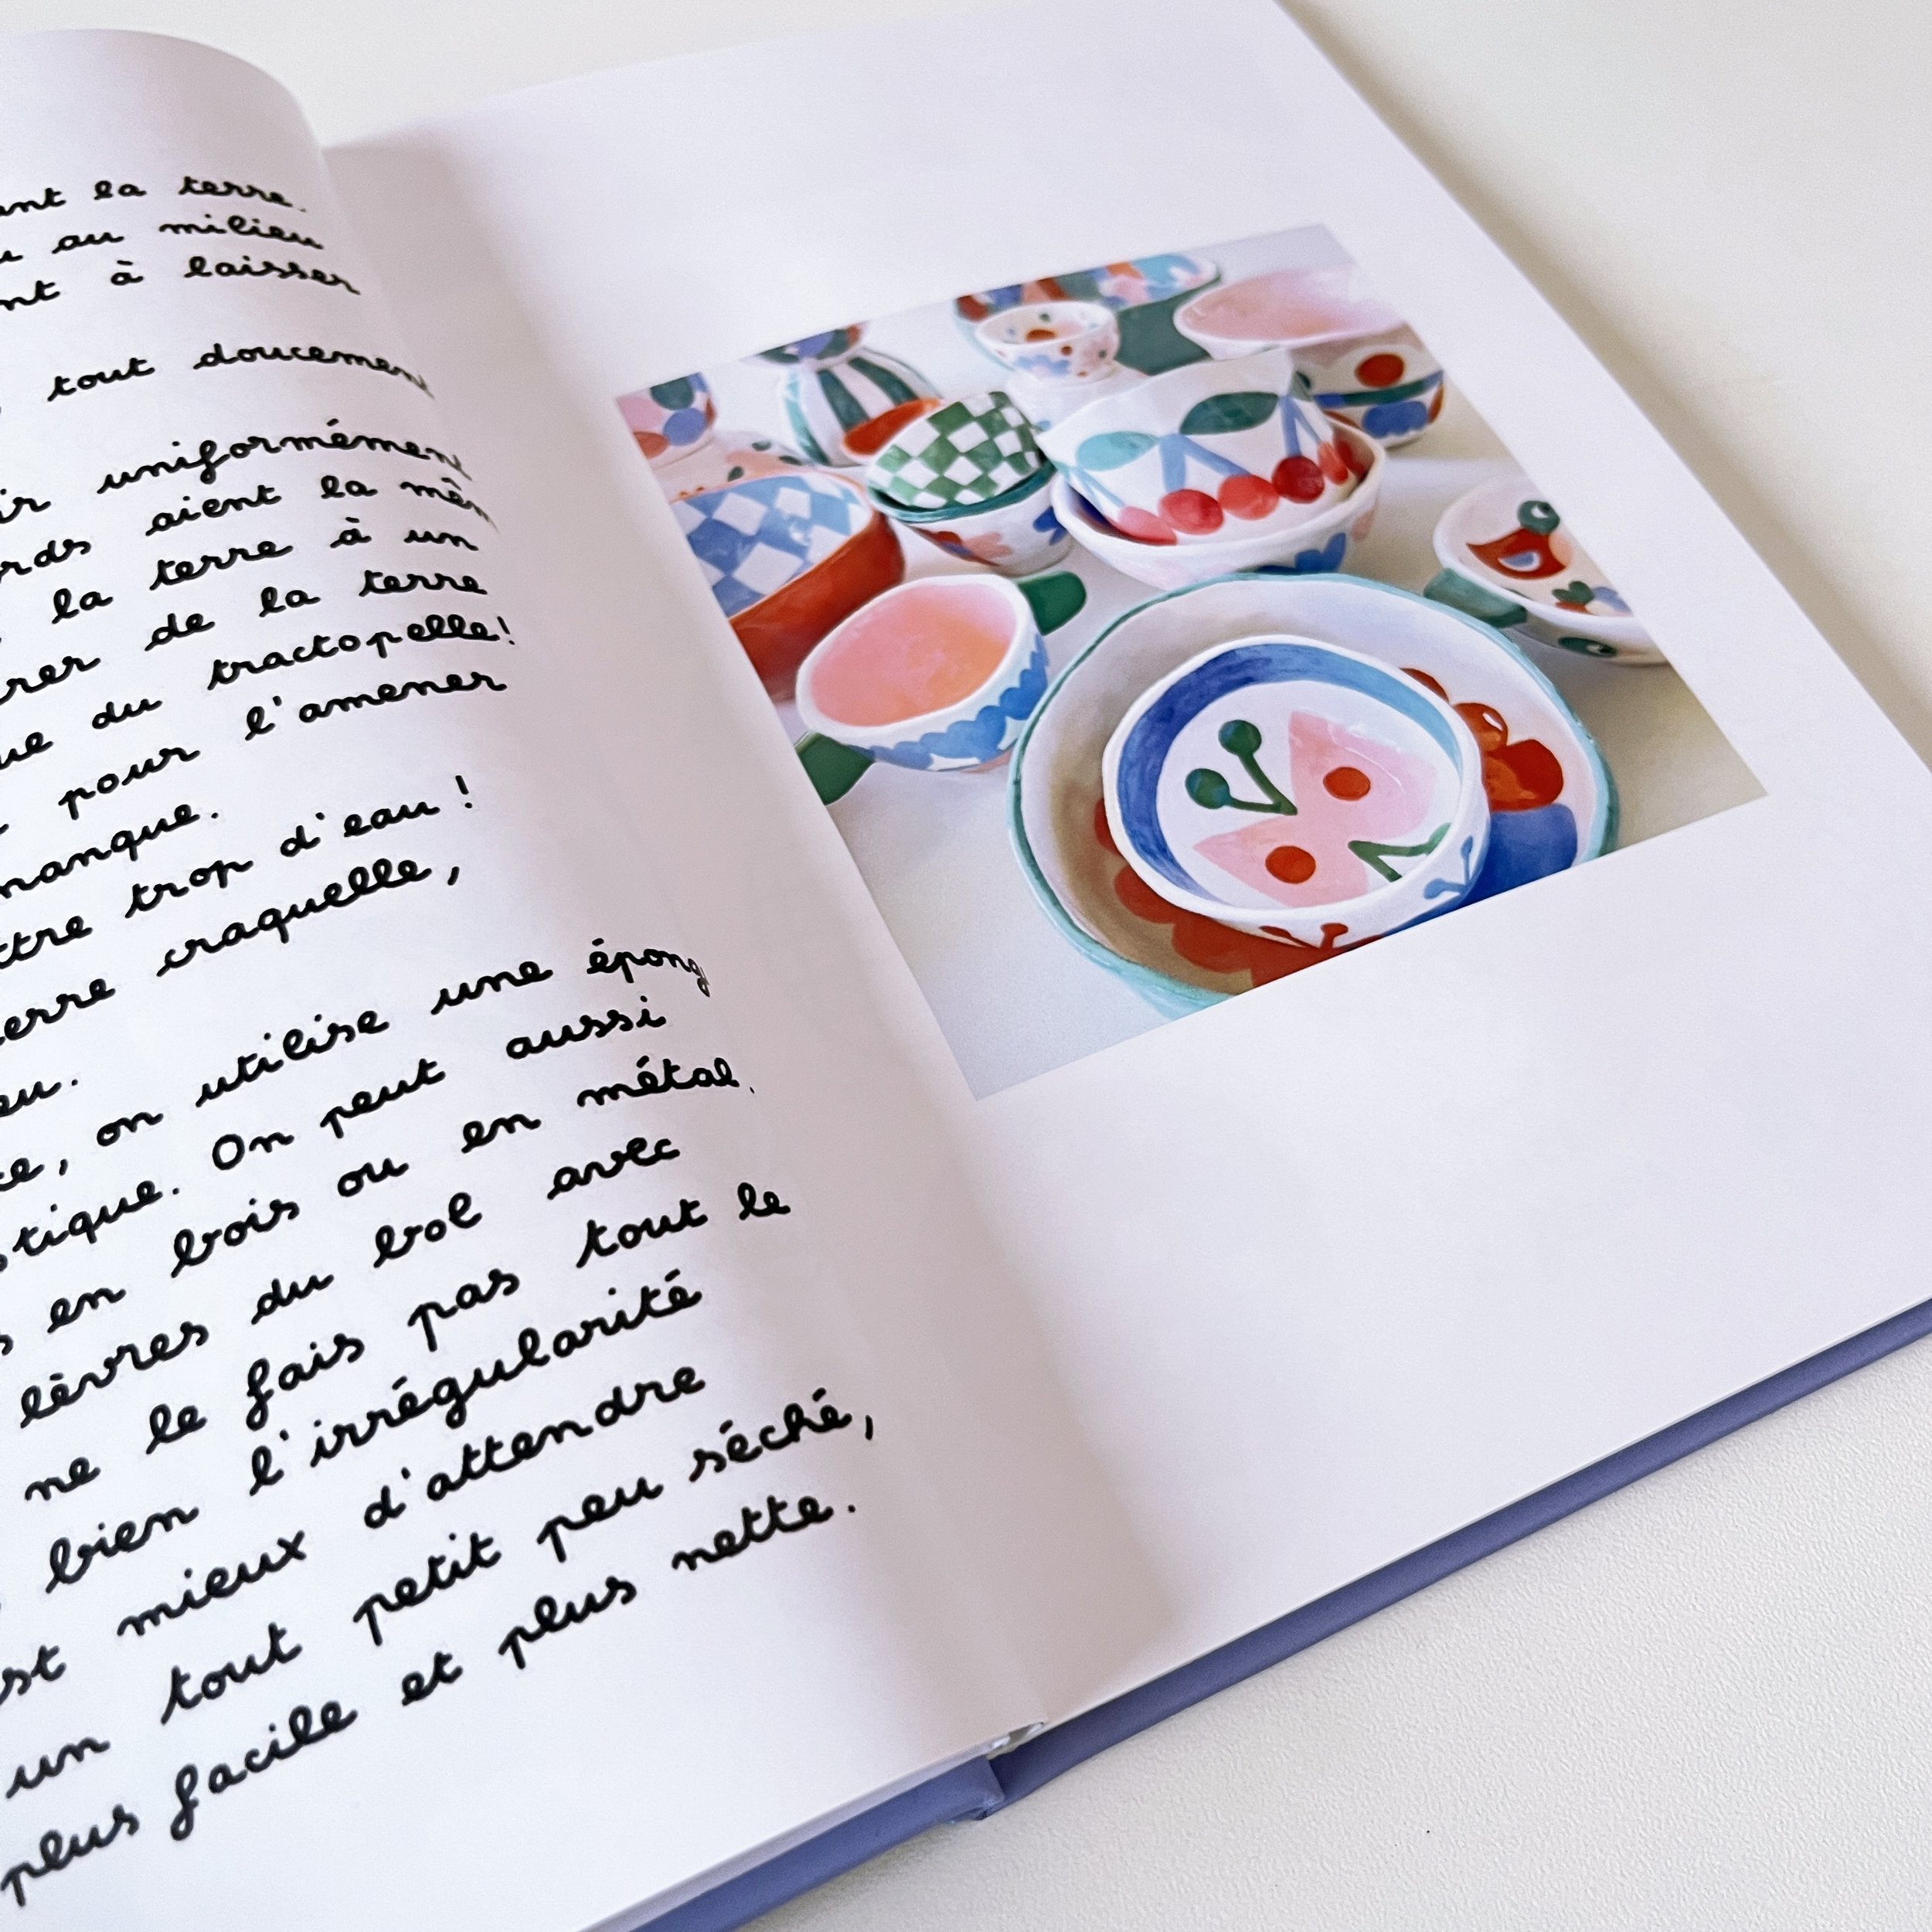 la terre.
au milieu
à laisser
tout doucement
uniformément
aient la
la terre à un
de la terre
du tractopelle!
pour l'amener
manque.
trop d'eau !
craquelle,
on utilise une
On peut aussi
en bois ou en métal.
lèvres du bol avec
ne le fais pas tout le
bien l'irrégularité
mieux d'attendre
un tout petit peu séché,
plus facile et plus nette.